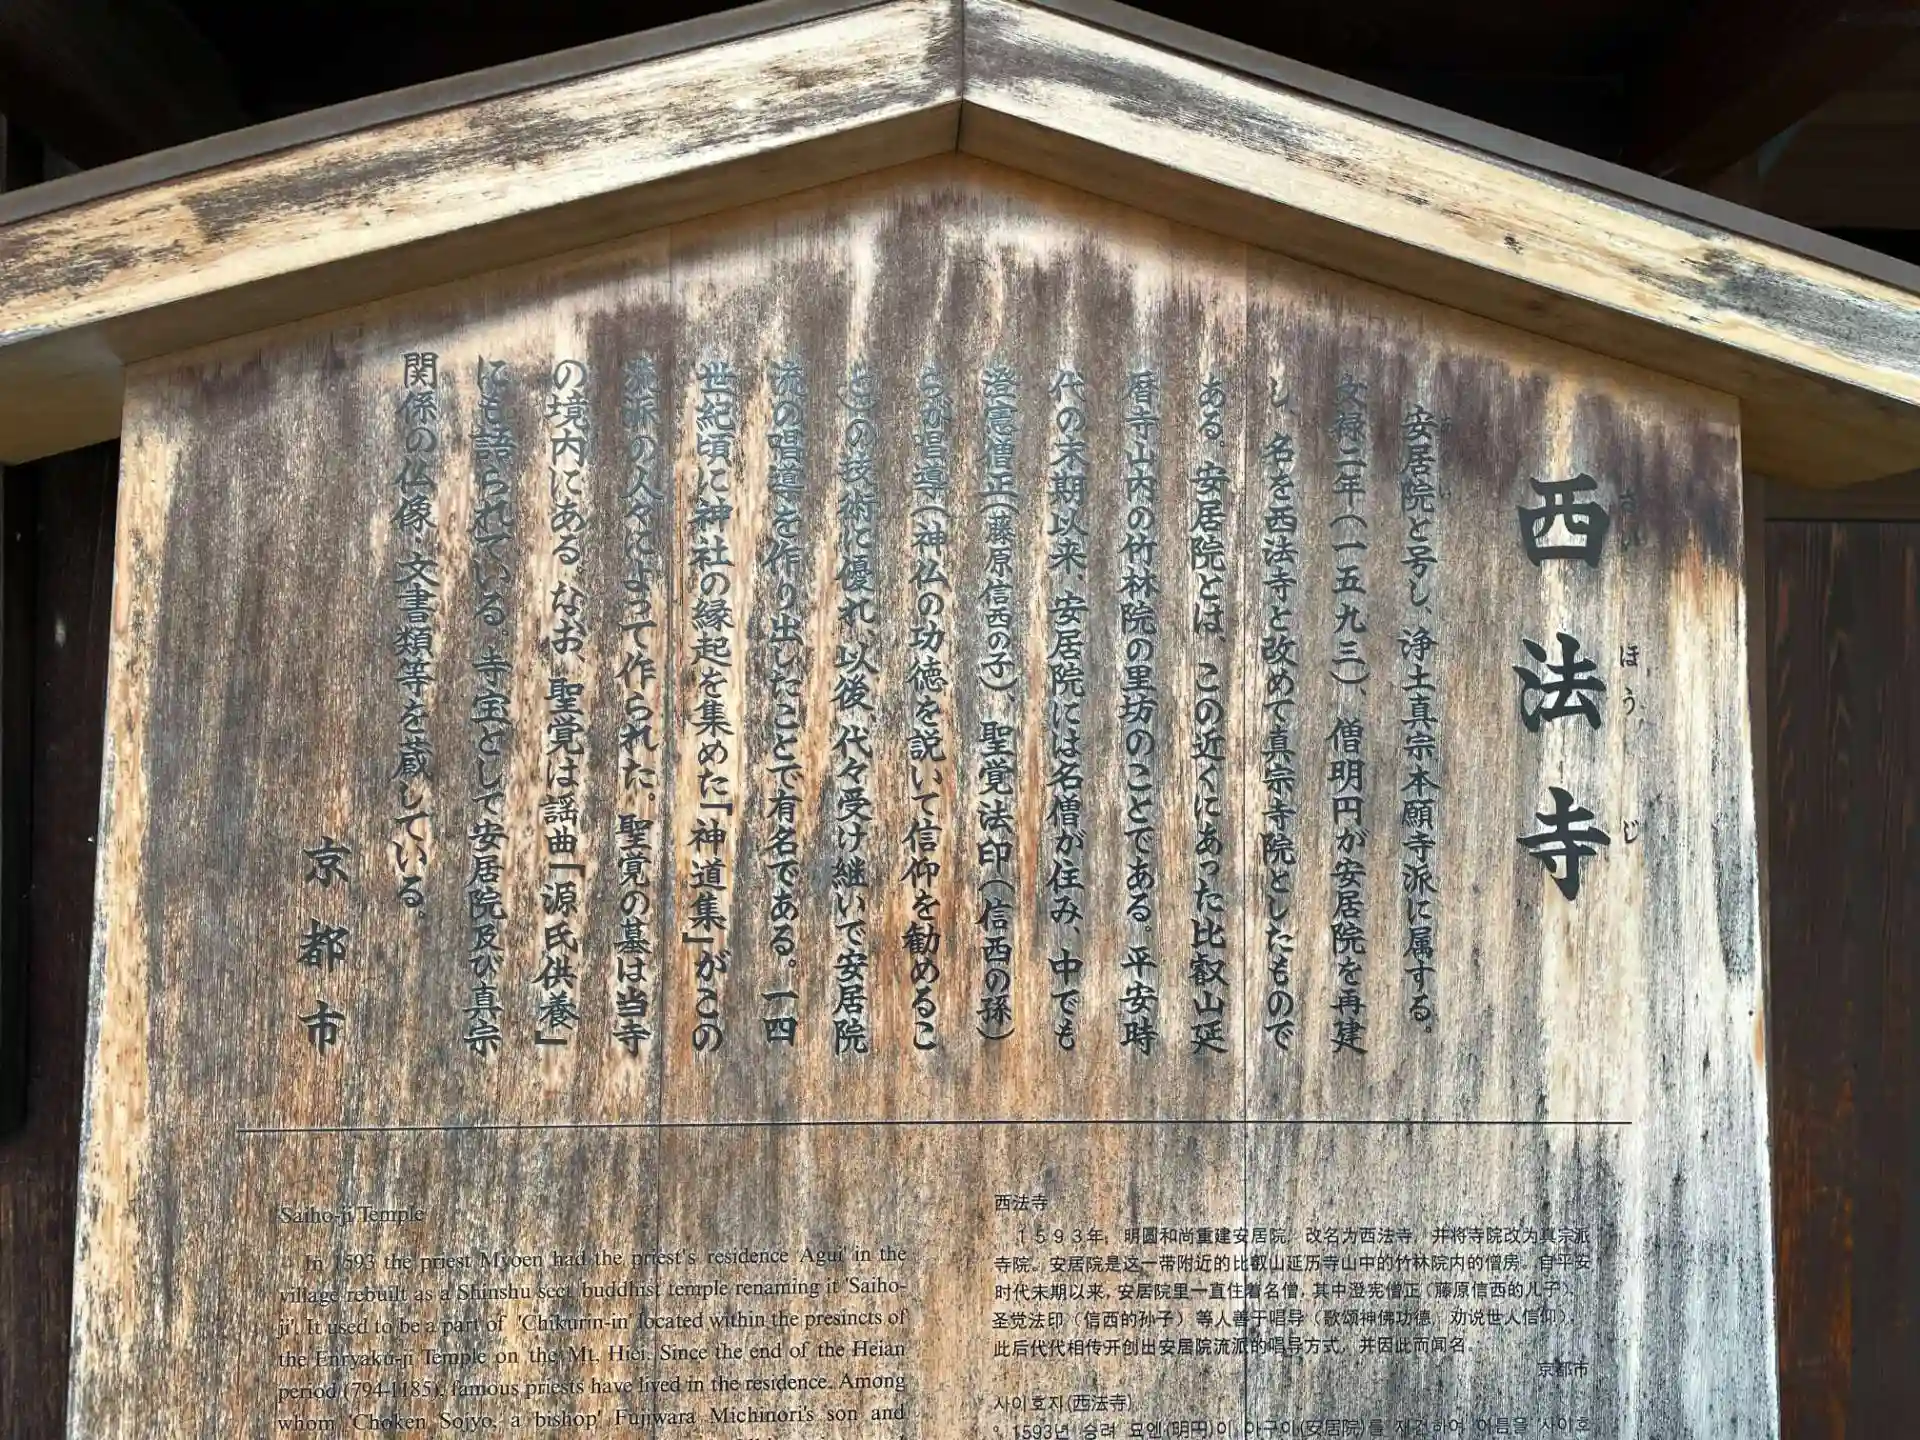 西法寺
さいほうじ
安居院と号し、浄土真宗本願寺派に属する。
文禄二年(一五九三)、僧明円が安居院を再建
し、名を西法寺と改めて真宗寺院としたもので
ある。安居院とは、この近くにあった比叡山延
暦寺山内の竹林院の里坊のことである。平安時
代の末期以来、安居院には名僧が住み、中でも
澄憲僧正(藤原信西の子)、聖覚法印(信西の孫)
らが唱導(神仏の功徳を説いて信仰を勧めるこ
と)の技術に優れ、以後、代々受け継いで安居院
流の唱導を作り出したことで有名である。一四
世紀頃に神社の縁起を集めた「神道集」がこの
流派の人々によって作られた。聖覚の墓は当寺
の境内にある。なお、聖覚は謡曲「源氏供養」
にも語られている。寺宝として安居院及び真宗
関係の仏像、文書類等を蔵している。
京都市
Saiho-ji Temple
In 1593 the priest Myoen had the priest's residence 'Agui' in the
village rebuilt as a Shinshu sect buddhist temple renaming it 'Saiho-
ji'. It used to be a part of 'Chikurin-in' located within the presincts of
the Enryaku-ji Temple on the Mt, Hiei. Since the end of the Heian
period (794-1185), famous priests have lived in the residence. Among
whom 'Choken Sojyo, a bishop' Fujiwara Michinori's son and
西法寺
1593年，明圆和尚重建安居院，改名为西法寺，并将寺院改为真宗派
寺院。安居院是这一带附近的比叡山延历寺山中的竹林院内的僧房。自平安
时代末期以来，安居院里一直住着名僧，其中澄宪僧正（藤原信西的儿子）、
圣觉法印（信西的孙子）等人善于唱导（歌颂神佛功德，劝说世人信仰），
此后代代相传开创出安居院流派的唱导方式，并因此而闻名。
京都市
사이호지(西法寺)
1593년 승려 묘엔(明円)이 아구이(安居院)를 재건하여 이름을 사이호